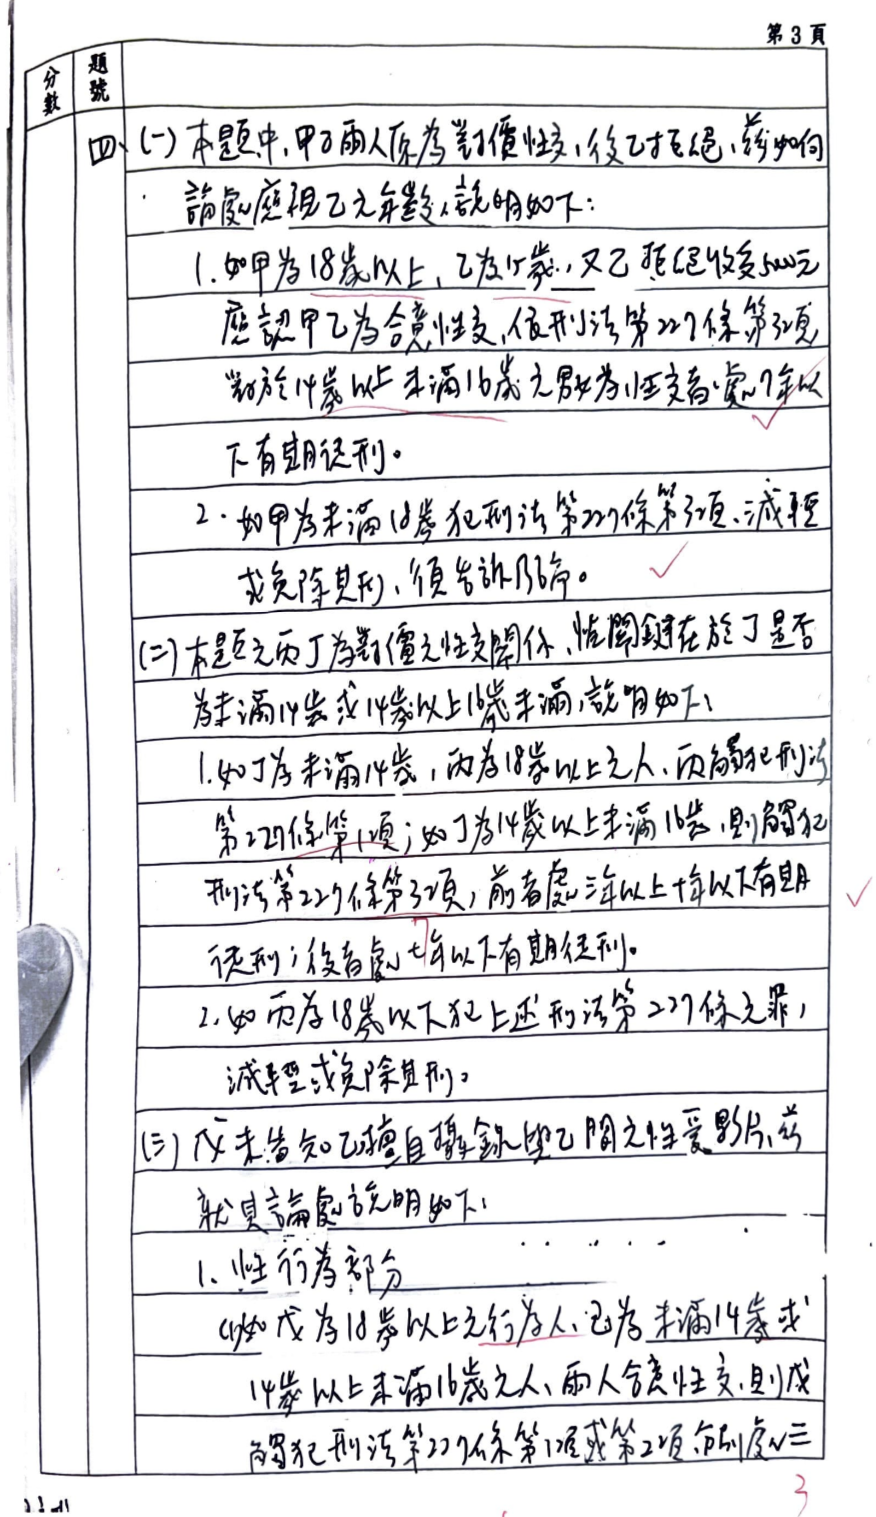 第3頁
分數
題號
四、(一)本題中,甲乙兩人原為對價性交,後乙拒絕,茲如何
論處應視乙之年齡,說明如下:
1.如甲為18歲以上,乙為15歲,又乙拒絕收受5000元
應認甲乙為合意性交,依刑法第227條第3項
對於14歲以上未滿16歲之男女為性交者,處7年以
下有期徒刑。
2.如甲為未滿18歲犯刑法第227條第3項、減輕
或免除其刑,須告訴乃論。
(二)本題之丙丁為對價之性交關係,惟關鍵在於丁是否
為未滿14歲或14歲以上16歲未滿,說明如下:
1.如丁為未滿14歲,丙為18歲以上之人、丙觸犯刑法
第227條第1項;如丁為14歲以上未滿16歲,則觸犯
刑法第227條第3項,前者處三年以上十年以下有期
徒刑;後者處七年以下有期徒刑。
2.如丙為18歲以下犯上述刑法第227條之罪,
減輕或免除其刑。
(三)戊未告知己擅自攝錄與己間之性愛影片,茲
就其論處說明如下:
1.性行為部分
(1)如戊為18歲以上之行為人、己為未滿14歲或
14歲以上未滿16歲之人、兩人合意性交,則戊
觸犯刑法第227條第1項或第2項,分別處三
3